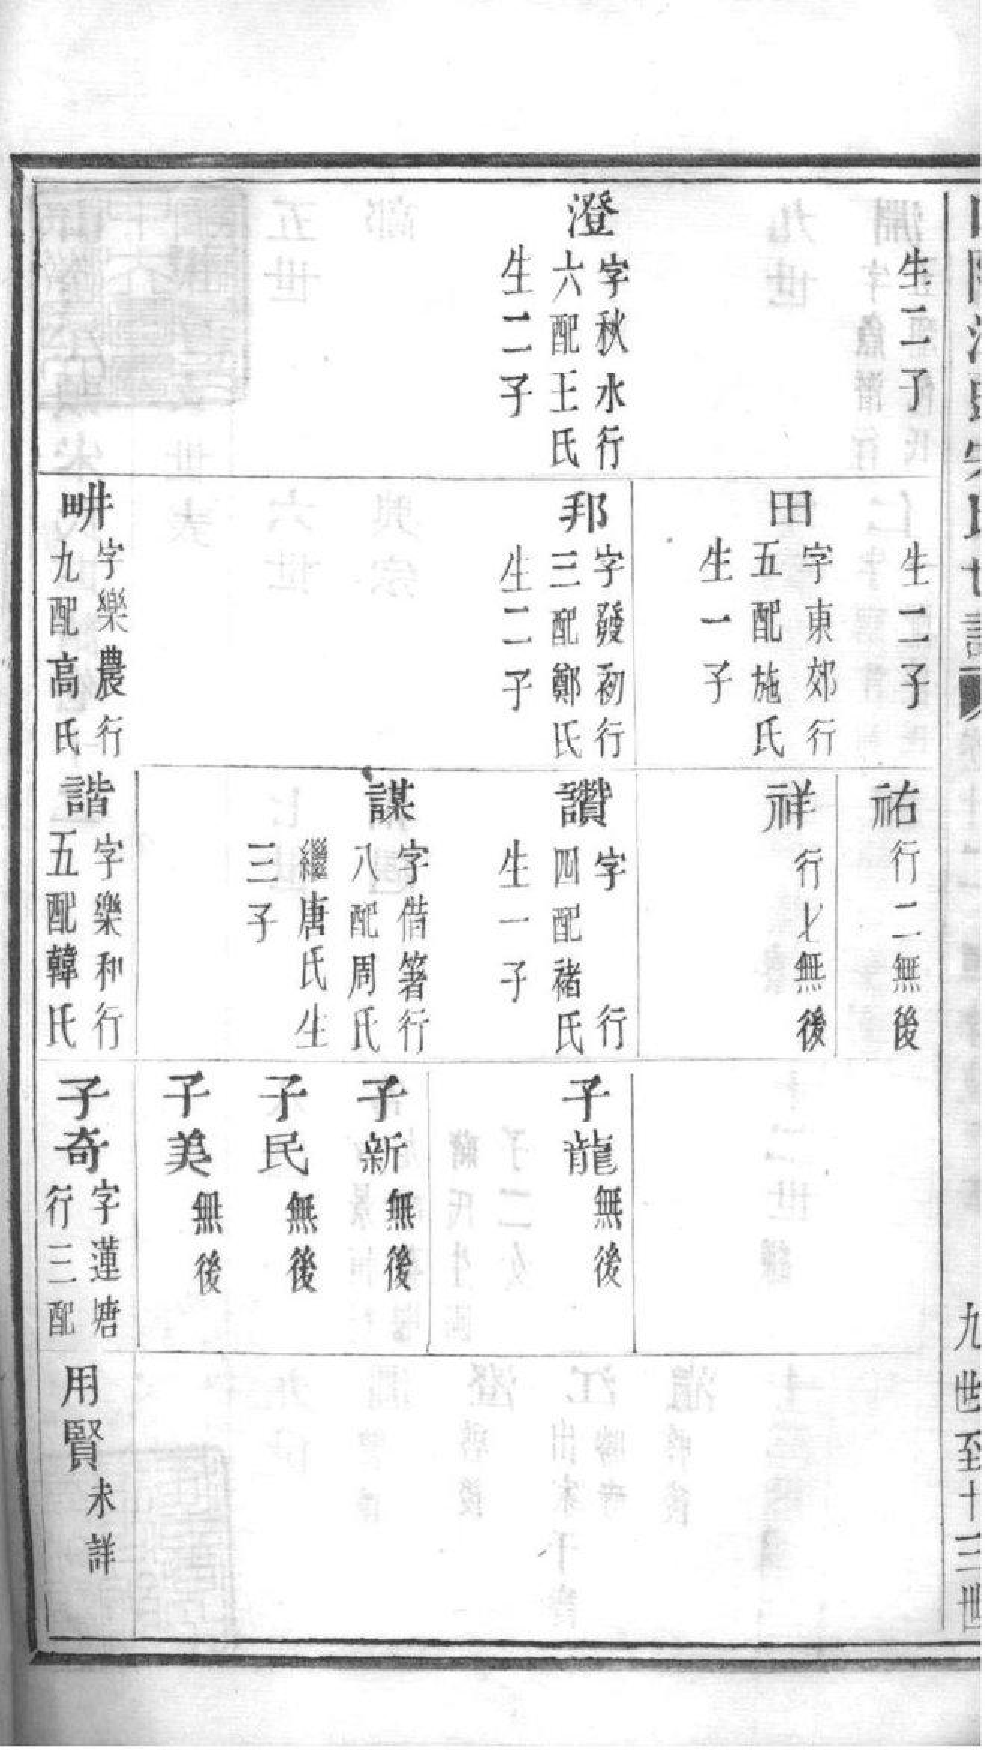 九世至十三世
生二子
澄
字秋水行
六配王氏
生二子
生二子
田
字東郊行
五配施氏
生一子
邦
字發初行
三配鄭氏
生二子
畊
字樂農行
九配高氏
祐
行二無後
祥
行七無後
讚
字 行
四配褚氏
生一子
謀
字借箸行
八配周氏
繼唐氏生
三子
諧
字樂和行
五配韓氏
子龍
無後
子新
無後
子民
無後
子美
無後
子奇
字蓮塘
行三配
用賢
未詳